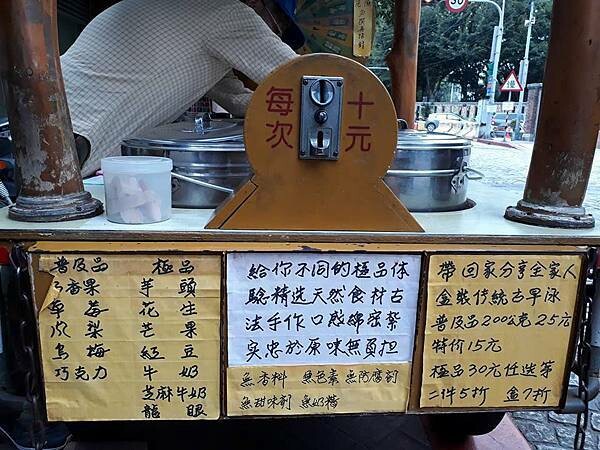 每次
十元
普及品 極品
百香果 芋頭
草莓 花生
鳳梨 芒果
烏梅 紅豆
巧克力 牛奶
芝麻牛奶
龍眼
給你不同的極品体
驗精选天然食材古
法手作口感綿密紮
实忠於原味無負担
無香料 無色素 無防腐剂
無甜味剂 無奶精
帶回家分亨全家人
盒裝传統古早味
普及品200公克25元
特价15元
極品30元任选第
二件5折 盒7折
50